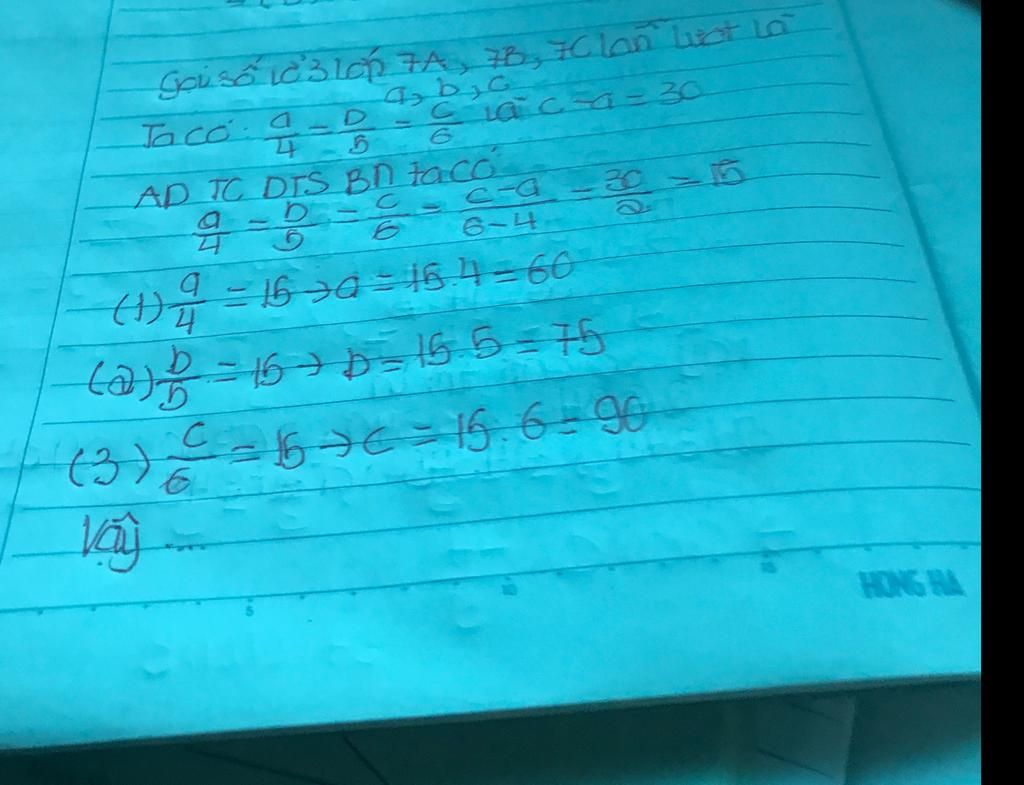 Gọi số lá 3 lớp 7A, 7B, 7C lần lượt là
a, b, c
Ta có: a/4 = b/5 = c/6 và c-a = 30
AD TC DTS BN ta có
a/4 = b/5 = c/6 = c-a/6-4 = 30/2 = 15
(1) a/4 = 15 → a = 15.4 = 60
(2) b/5 = 15 → b = 15.5 = 75
(3) c/6 = 15 → c = 15.6 = 90
Vậy ....
5 10 15
HONG HA